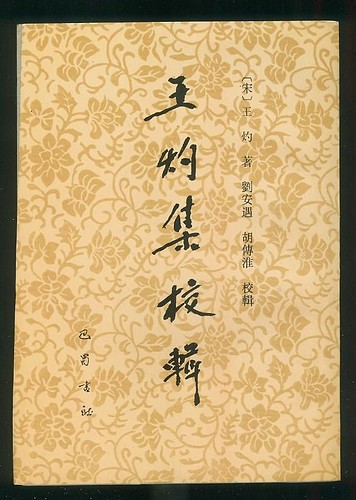 〔宋〕王灼 著 劉安遇 胡傳淮 校輯
王灼集校輯
巴蜀書社